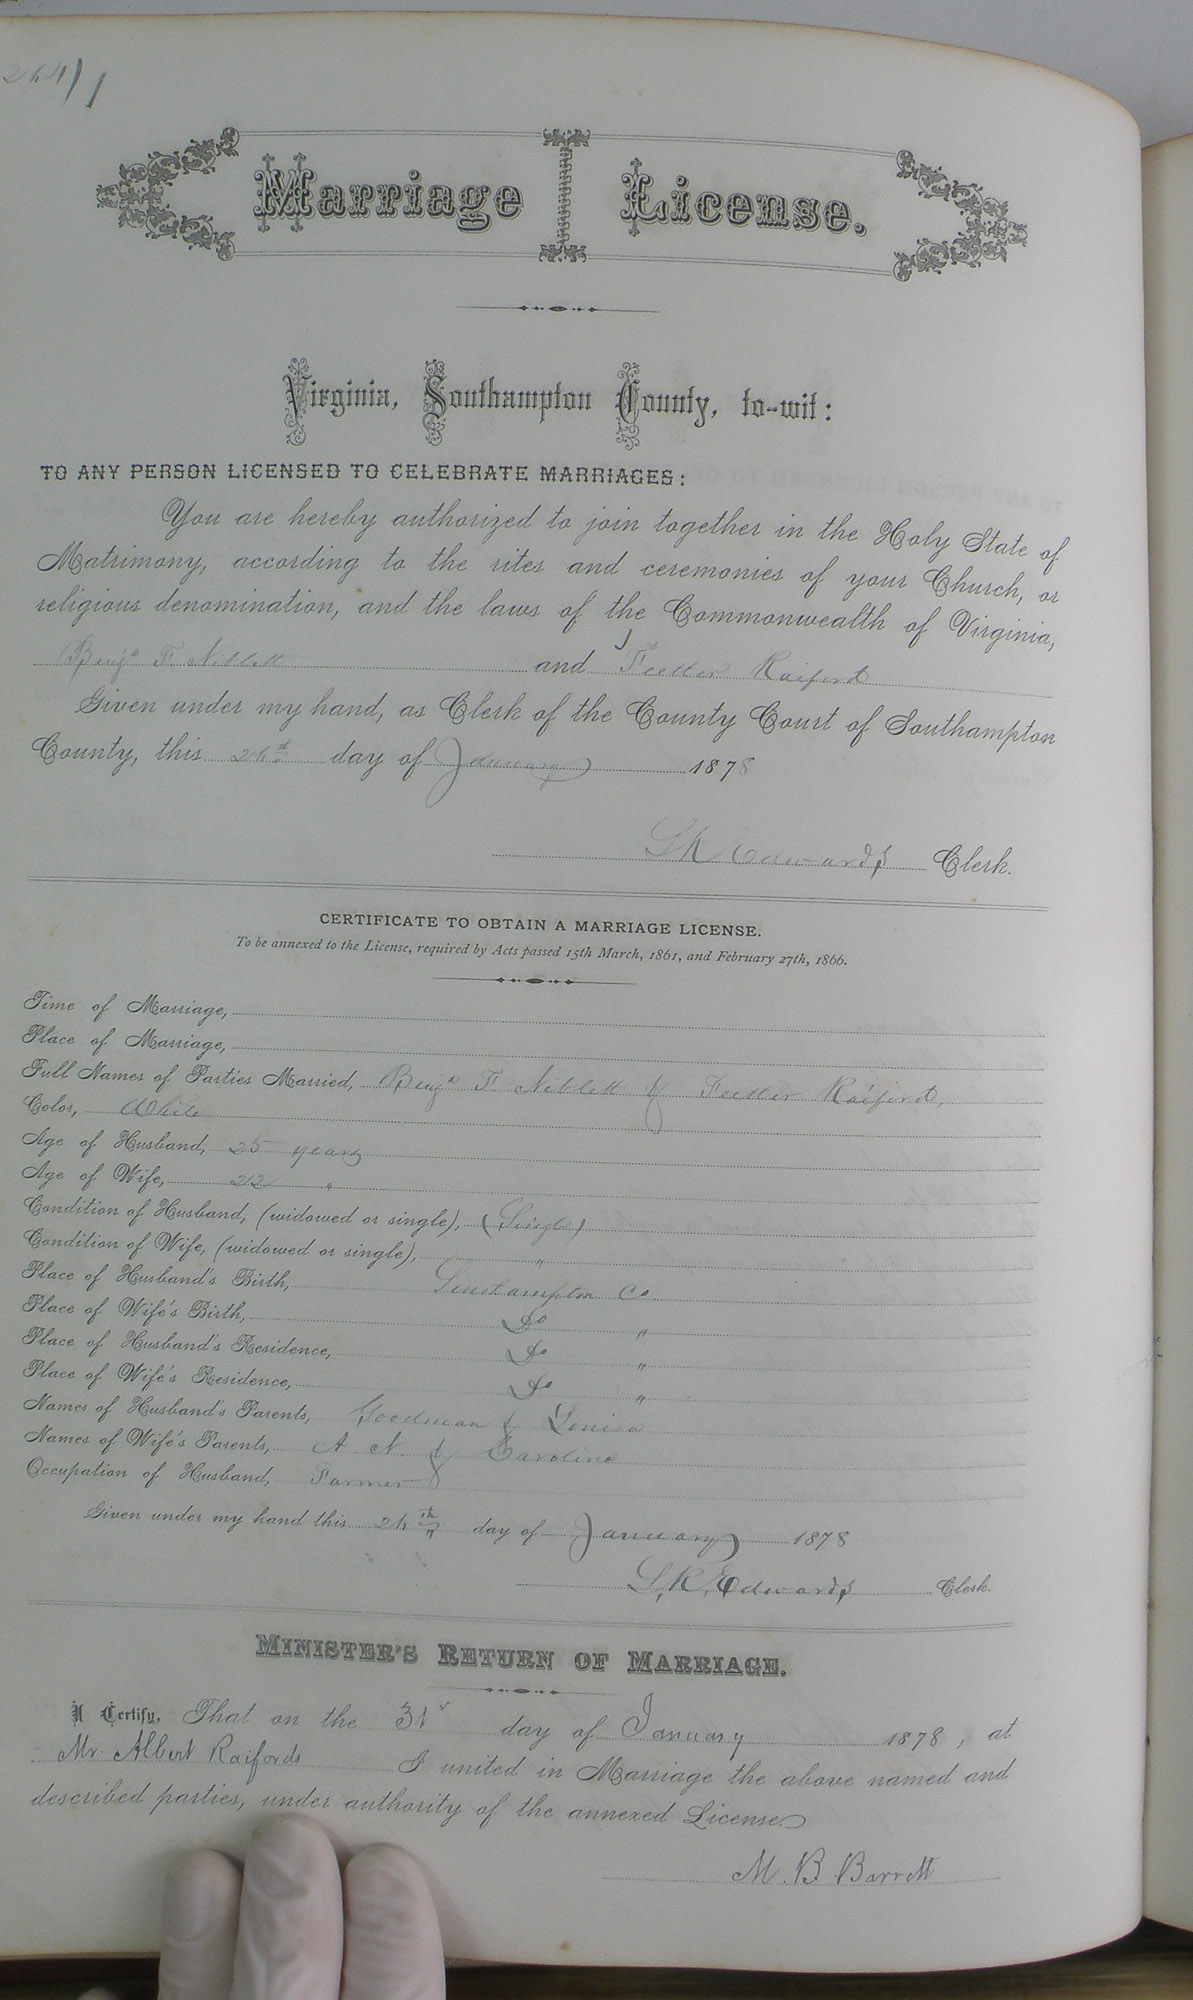 Marriage License.
Virginia, Southampton County, to-wit:
TO ANY PERSON LICENSED TO CELEBRATE MARRIAGES:
You are hereby authorized to join together in the Holy State of
Matrimony, according to the rites and ceremonies of your Church, or
religious denomination, and the laws of the Commonwealth of Virginia,
Benja F. Niblett and Raiford
Given under my hand, as Clerk of the County Court of Southampton
County, this day of January 1878
L R Edwards Clerk.
CERTIFICATE TO OBTAIN A MARRIAGE LICENSE.
To be annexed to the License, required by Acts passed 15th March, 1861, and February 27th, 1866.
Time of Marriage,
Place of Marriage,
Full Names of Parties Married, Benja F Niblett & Raiford,
Color, White
Age of Husband, 25 years
Age of Wife, 22 "
Condition of Husband, (widowed or single), (Single)
Condition of Wife, (widowed or single), "
Place of Husband's Birth, Southampton Co.
Place of Wife's Birth, Do "
Place of Husband's Residence, Do "
Place of Wife's Residence, Do "
Names of Husband's Parents, Goodman & Louisa
Names of Wife's Parents, A. N. & Caroline
Occupation of Husband, Farmer
Given under my hand this day of January 1878
L. R. Edwards Clerk.
MINISTER'S RETURN OF MARRIAGE.
I Certify, That on the 31st day of January 1878, at
Mr. Albert Raifords I united in Marriage the above named and
described parties, under authority of the annexed License.
M. B. Barrett